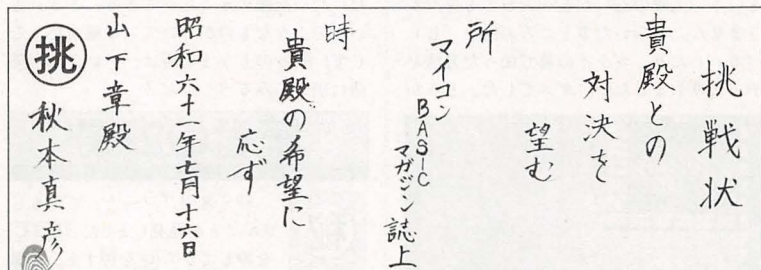 挑戦状
貴殿との
対決を
望む
所
マイコン
BASIC
マガジン 誌上
時
貴殿の希望に
応ず
昭和六十年七月十六日
山下章殿
挑 秋本真彦